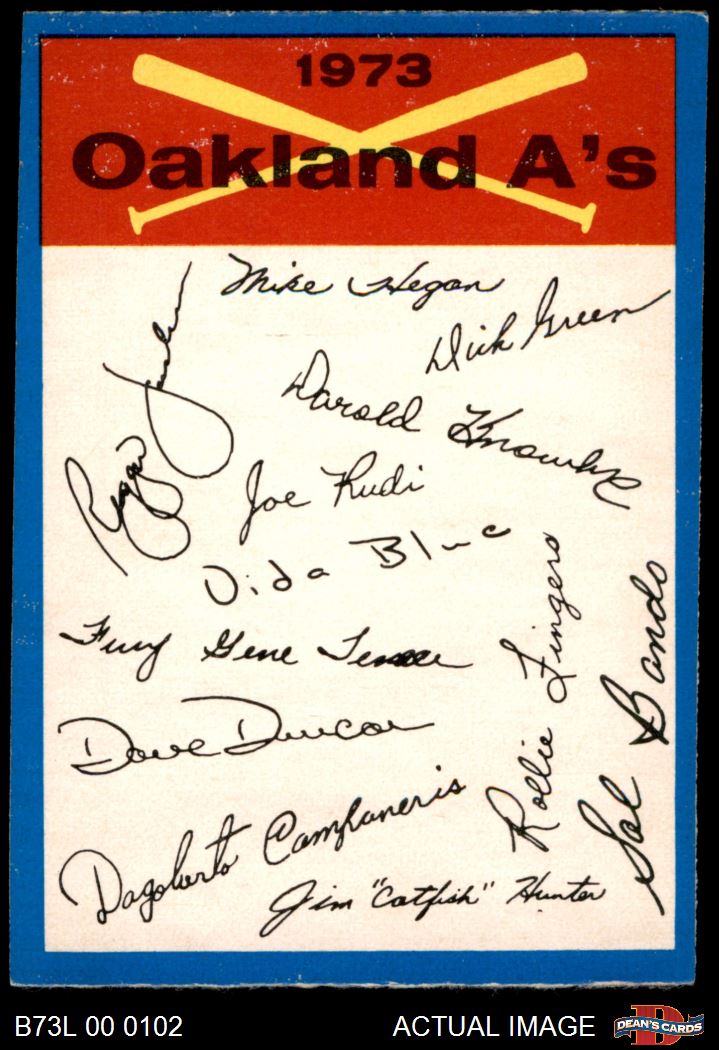 1973
Oakland A's
Mike Hegan
Dick Green
Reggie Jackson
Darold Knowles
Joe Rudi
Vida Blue
Fury Gene Tenace
Rollie Fingers
Sal Bando
Dave Duncan
Dagoberto Campaneris
Jim "Catfish" Hunter
B73L 00 0102
ACTUAL IMAGE
D
DEAN'S CARDS